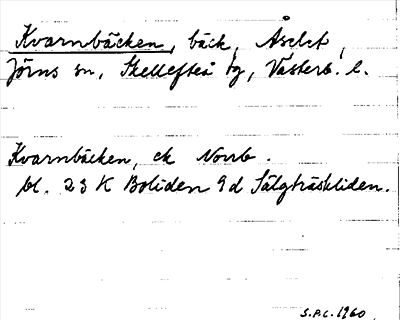 Kvarnbäcken, bäck, Åselet,
Jörns sn, Skellefteå tg, Västerb. l.
Kvarnbäcken, ek Norrb.
bl. 23 K Boliden 9d Sälgträskliden.
S.P.C. 1960.